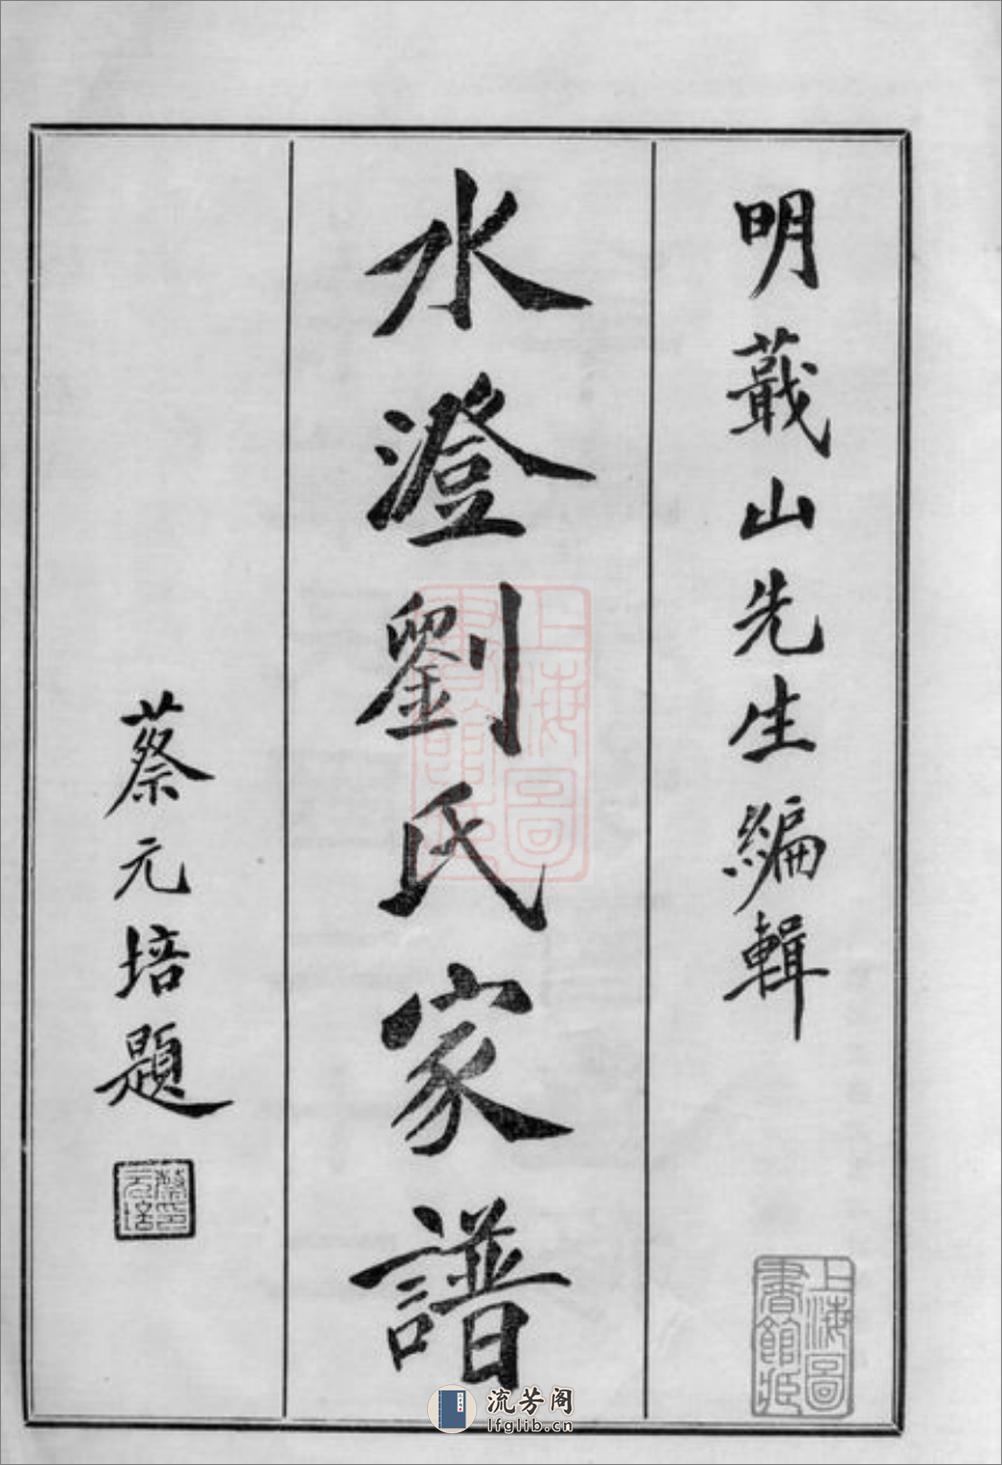 明蕺山先生編輯
水澄劉氏家譜
蔡元培題
蔡印元培
上海圖書館藏
上海圖書館藏
流芳阁
lfglib.cn